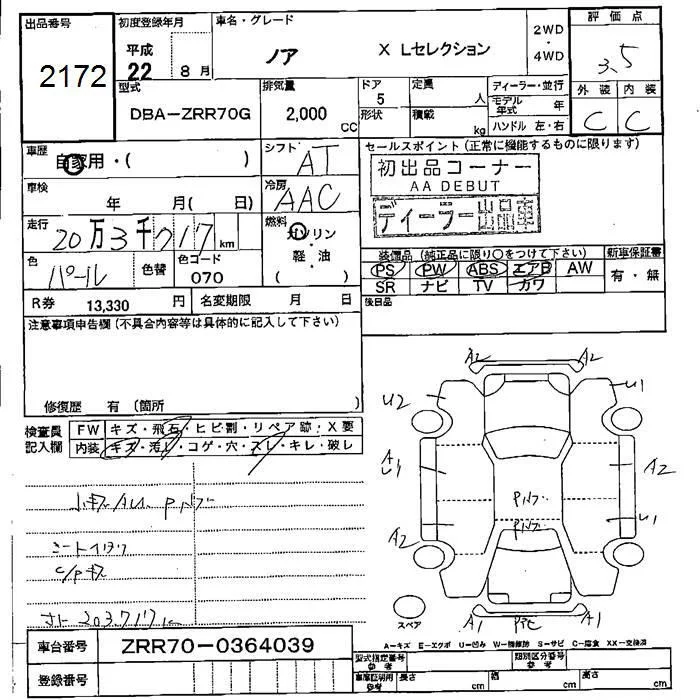 出品番号
2172
初度登録年月
平成
22 8月
車名・グレード
ノア X Lセレクション
2WD
・
4WD
評価点
3.5
外装 内装
C C
型式
DBA-ZRR70G
排気量
2,000 CC
ドア
5
形状
定員 人
積載 kg
ディーラー・並行
モデル年式 年
ハンドル 左・右
車歴
自家用・( )
シフト
AT
車検
年 月( 日)
冷房
AAC
走行
20万3千717km
燃料
ガソリン
・
軽・油
( )
色
パール
色替
色コード
070
R券 13,330 円 名変期限 月 日
セールスポイント(正常に機能するものに限ります)
初出品コーナー
AA DEBUT
ディーラー出品車
装備品(純正品に限り○をつけて下さい)
新車保証書
PS PW ABS エアB AW
SR ナビ TV カワ
有・無
後日品
注意事項申告欄(不具合内容等は具体的に記入して下さい)
修復歴 有(箇所 )
検査員
記入欄
FW キズ・飛石・ヒビ割・リペア跡・X要
内装 キズ・汚れ・コゲ・穴・スレ・キレ・破レ
C/Pキズ
A2 A2
U2 U1
A
U1
A2
U1
A2
A1 A1
スペア
A-キズ E-エクボ U-凹み W-補修跡 S-サビ C-腐食 XX-交換済
車台番号 ZRR70-0364039
登録番号
型式指定番号
参考
類別区分番号
参考
車庫証明用
参考
長さ cm 幅 cm 高さ cm